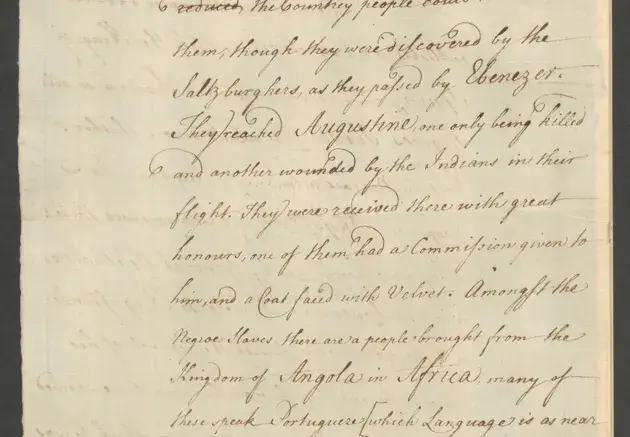 reduced, the Countrey people could
them, though they were discovered by the
Saltzburghers, as they passed by Ebenezer.
They reached Augustine, one only being killed
and another wounded by the Indians in their
flight. They were received there with great
honours, one of them had a Commission given to
him, and a Coat faced with Velvet. Amongst the
Negroe Slaves there are a people brought from the
Kingdom of Angola in Africa, many of
these speak Portugueze [which Language is as near